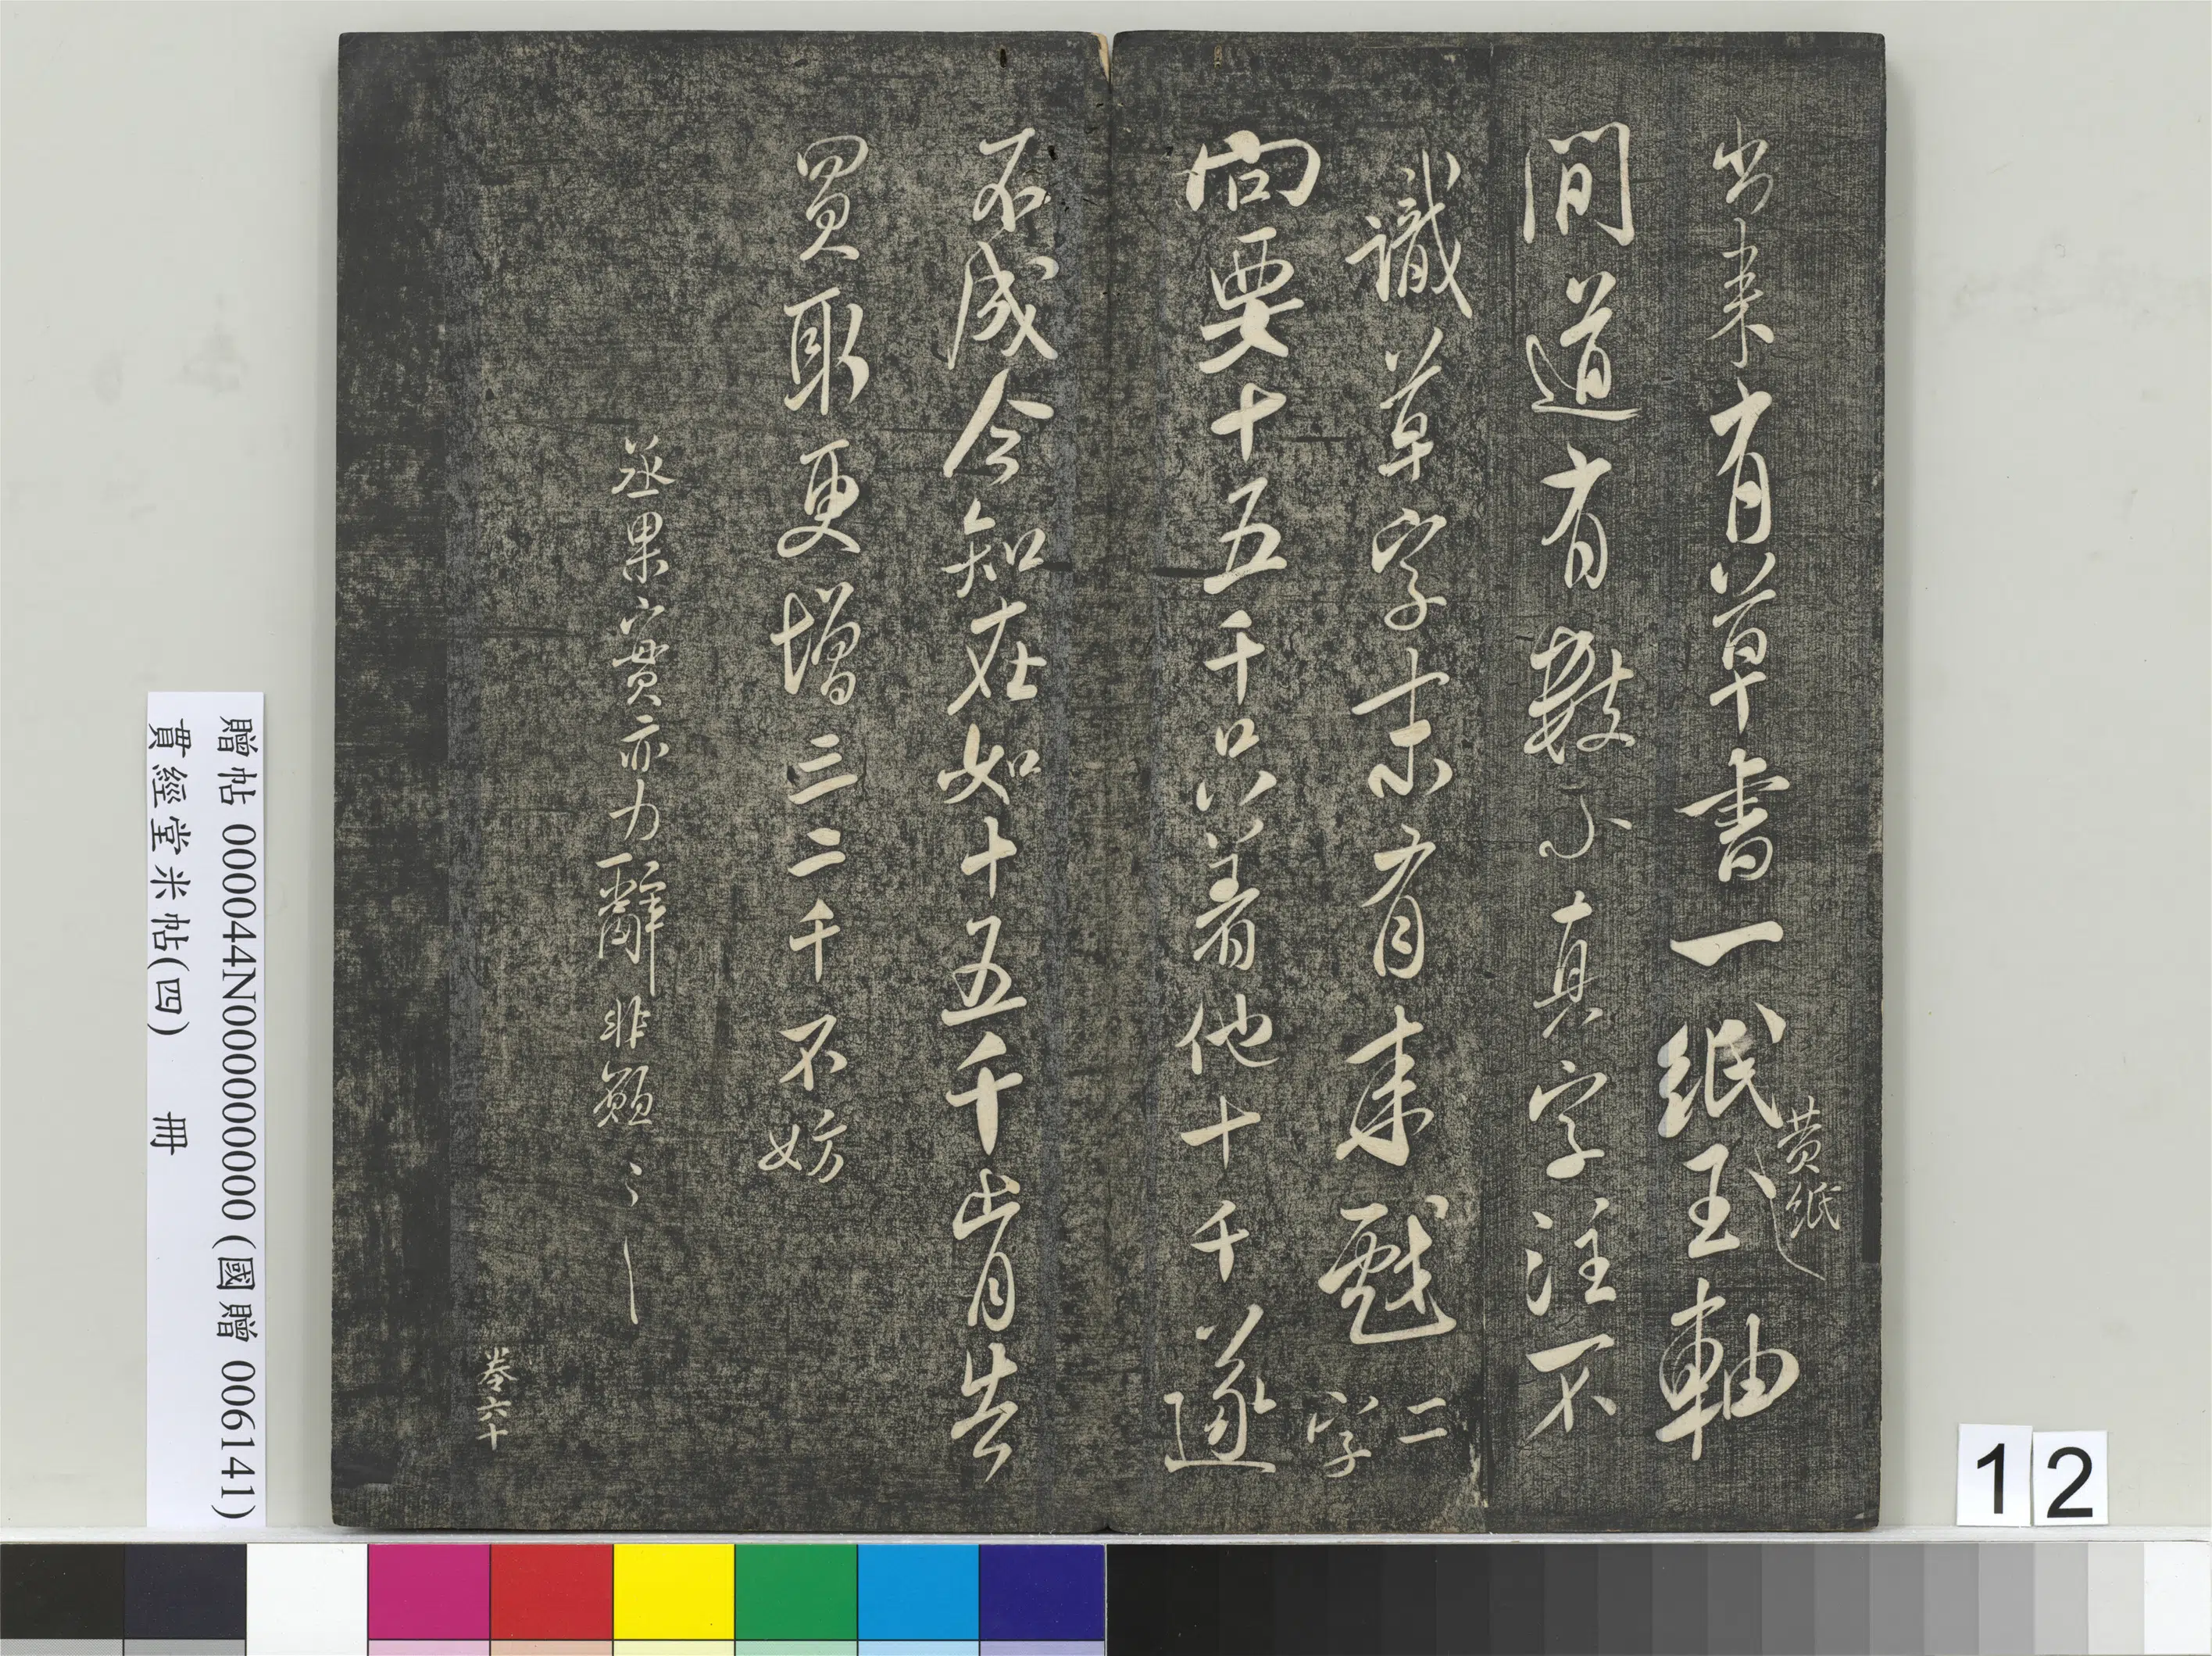 出來有草書一紙黃紙玉軸
間道有數小真字注不
識草字末有來戲二字
向要十五千只著他十千遂
不成今知在如十五千肯告
買取更增三二千不妨
丞果實亦力辭非願〻
卷六十
贈帖 000044N000000000 (國贈 006141)
貫經堂米帖(四) 冊
12